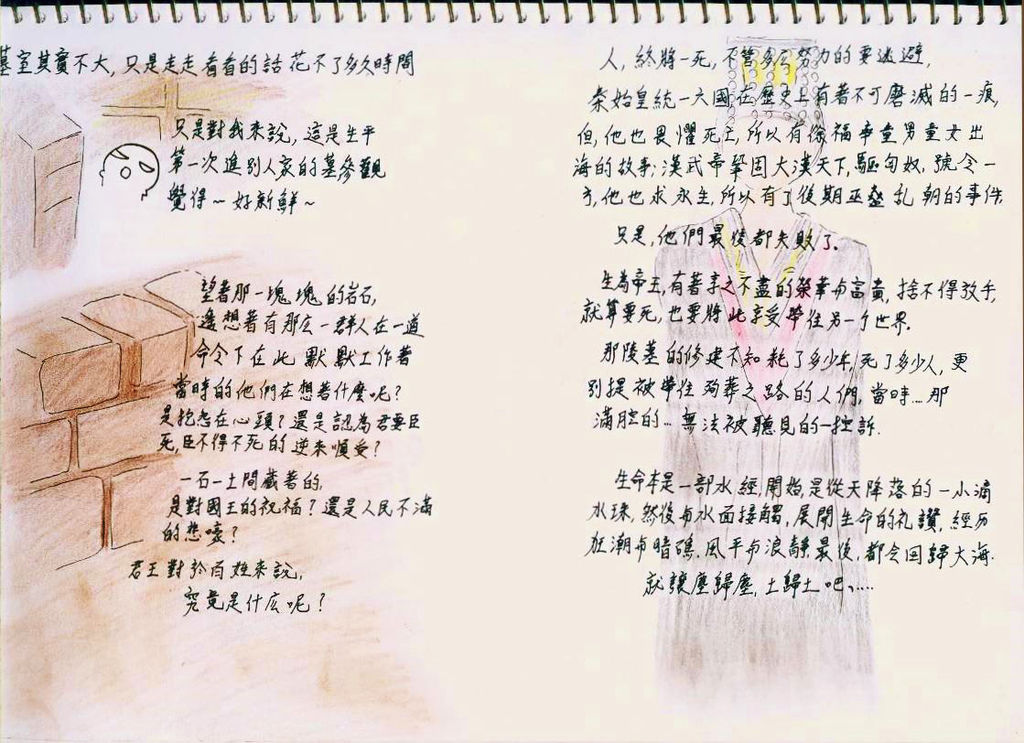 墓室其實不大,只是走走看看的話花不了多久時間
只是對我來說,這是生平
第一次進別人家的墓參觀
覺得~好新鮮~
望著那一塊塊的岩石,
遙想著有那么一群人在一道
命令下在此默默工作著
當時的他們在想著什麼呢?
是抱怨在心頭?還是認為君要臣
死,臣不得不死的逆來順受?
一石一土間藏著的,
是對國王的祝福?還是人民不滿
的悲嚎?
君王對於百姓來說,
究竟是什么呢?
人,終將一死,不管多么努力的要逃避,
秦始皇統一六國在歷史上有著不可磨滅的一痕,
但,他也畏懼死亡,所以有徐福率童男童女出
海的故事;漢武帝鞏固大漢天下,驅匈奴,號令一
方,他也求永生,所以有了後期巫蠱乱朝的事件.
只是,他們最後都失敗了.
生為帝王,有著享之不盡的榮華与富貴,捨不得放手,
就算要死,也要將此享受帶往另一个世界.
那陵墓的修建不知耗了多少年,死了多少人,更
別提被帶往殉葬之路的人們,當時...那
滿腔的...無法被聽見的一控訴.
生命本是一部水經,開始,是從天降落的一小滴
水珠,然後与水面接觸,展開生命的礼讚,經历
狂潮与暗礁,風平与浪靜最後,都会回歸大海.
就讓塵歸塵,土歸土吧......